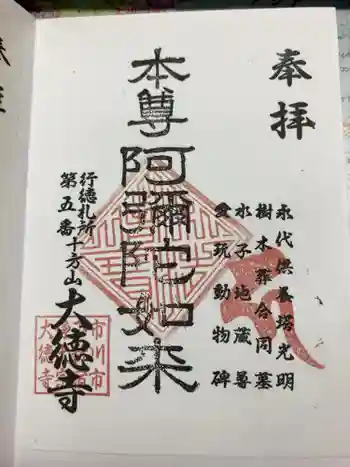 奉拝
永代供養塔光明
樹木葬合同墓
水子地蔵尊
愛玩動物碑
本尊阿彌陀如来
行徳札所
第五番十方山
大徳寺
市川市
大徳寺